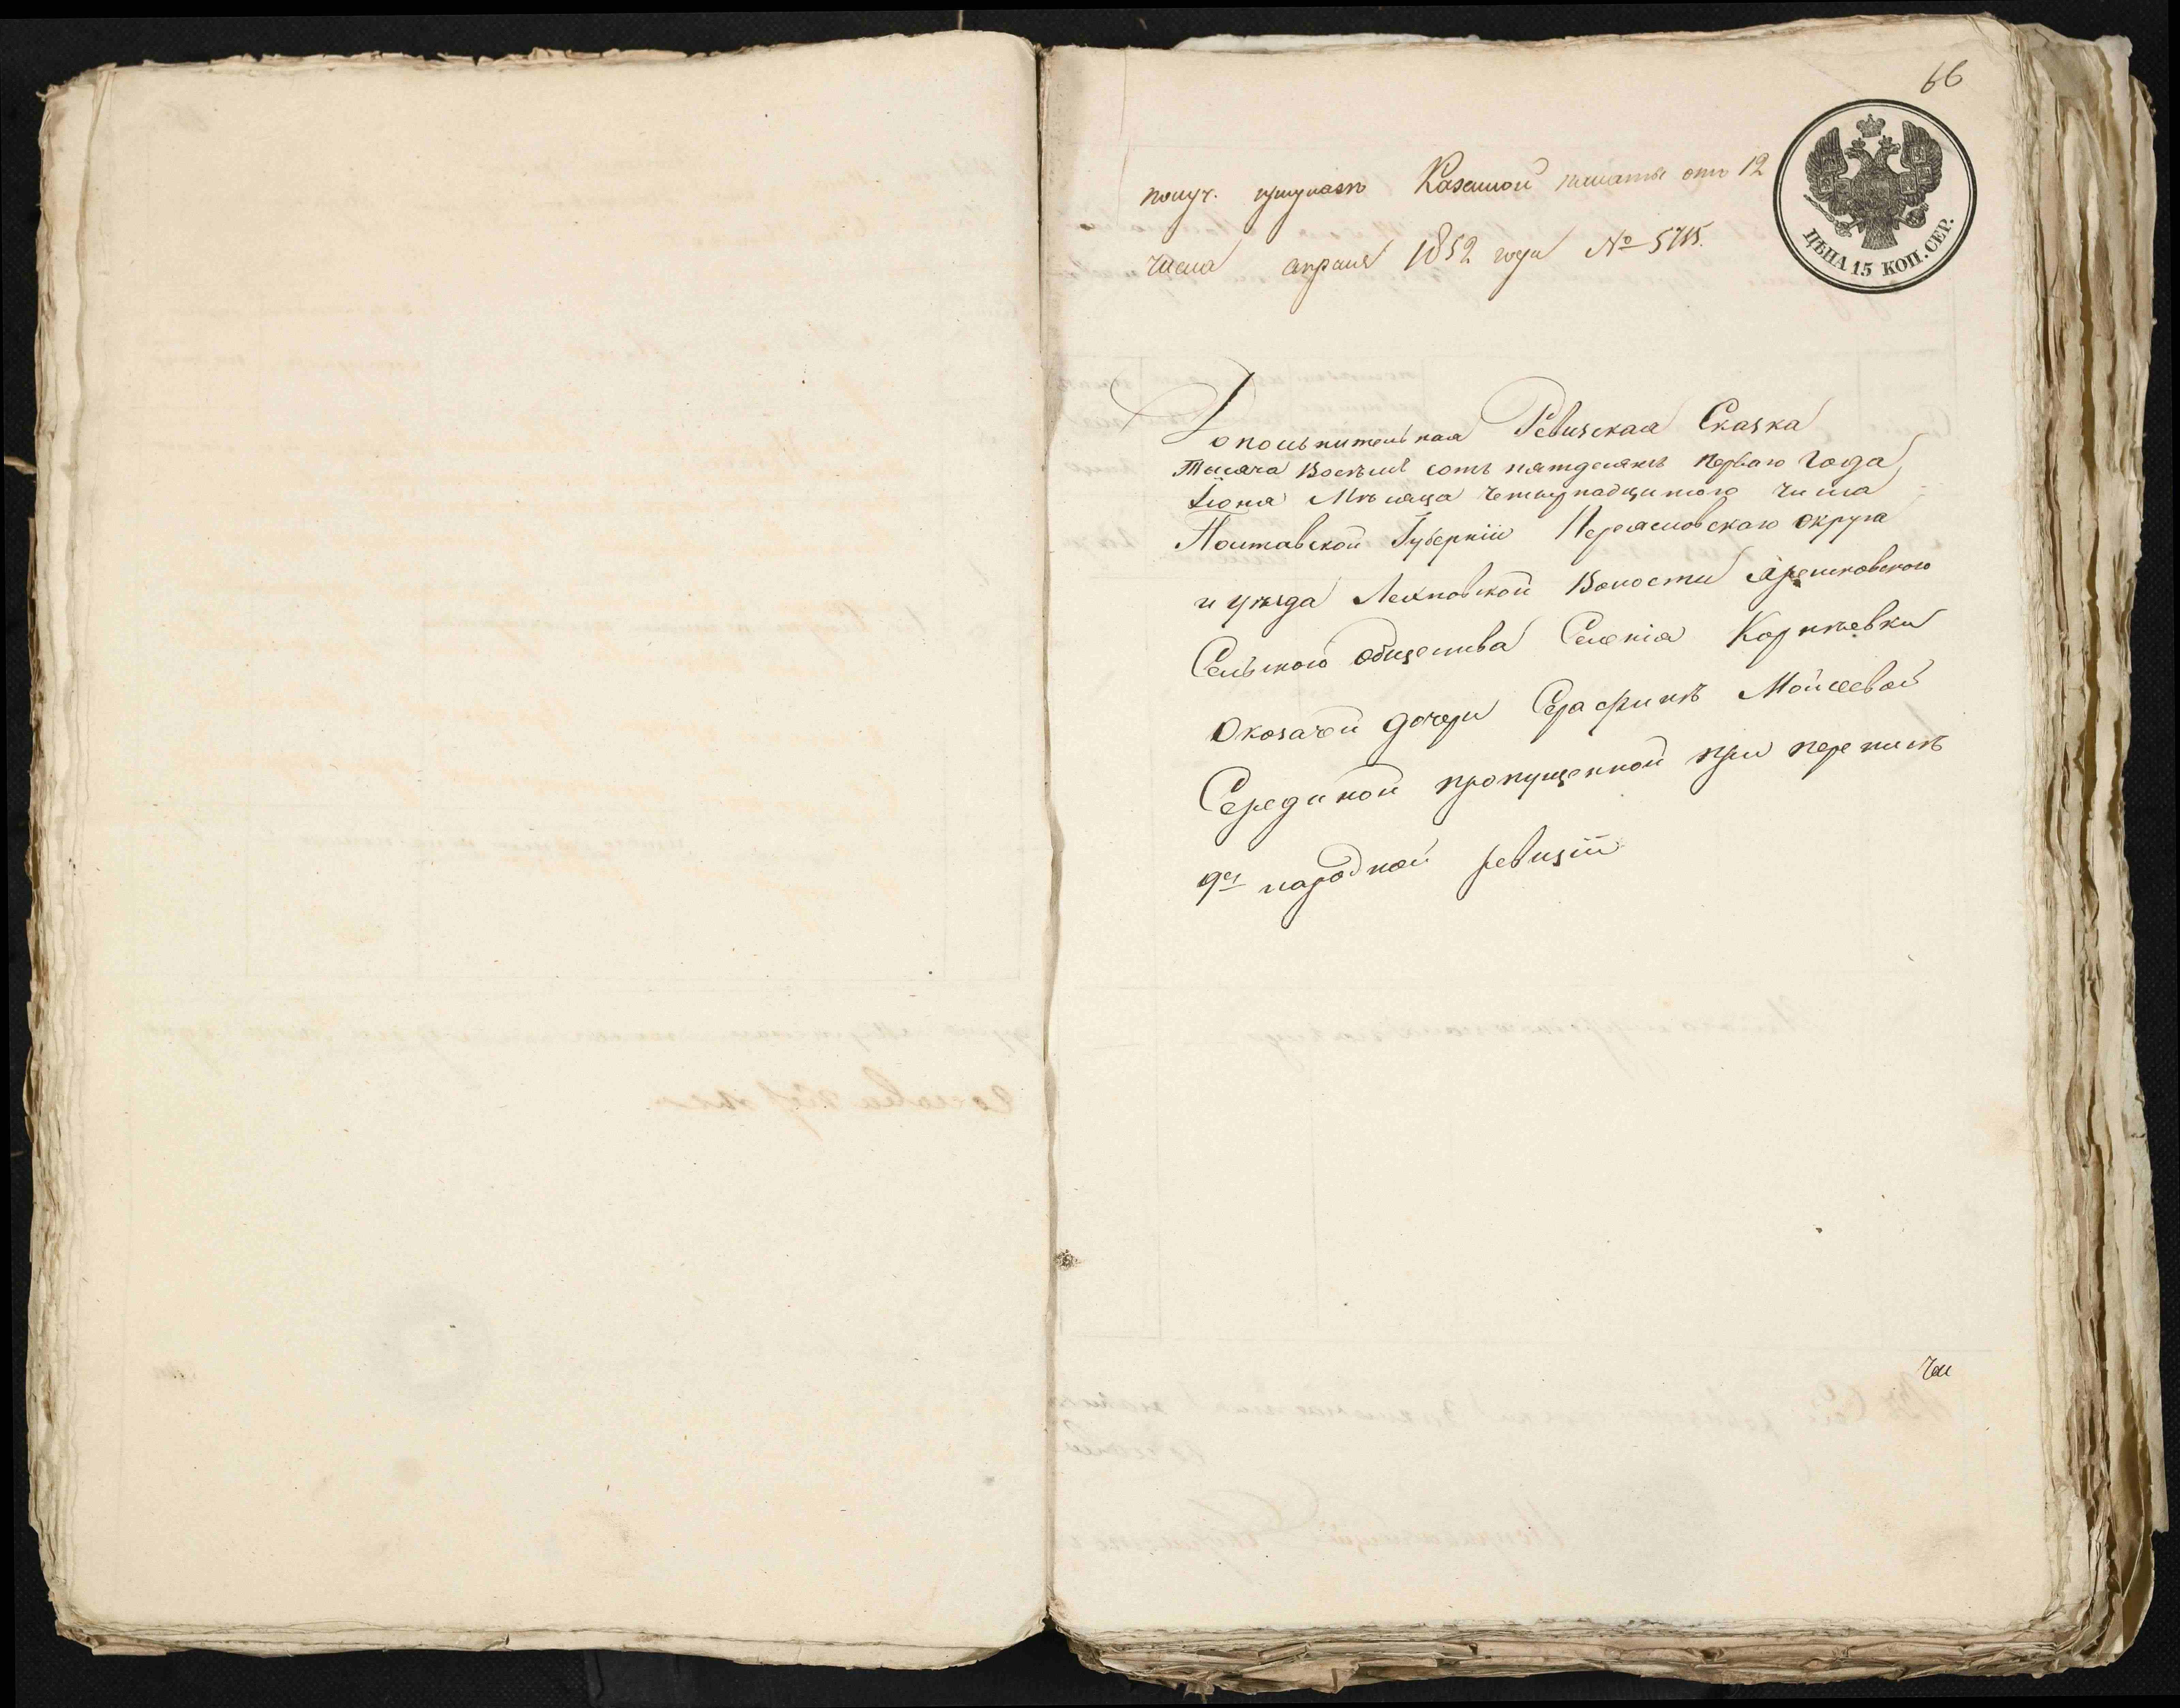 66
ЦѢНА 15 КОП. СЕР.
получ. при указѣ Казенной палаты отъ 12
числа апреля 1852 года № 5715.
Дополнительная Ревизская Сказка
Тысяча Восемь сотъ пятдесятъ перваго Года,
Іюня Мѣсяца четырнадцатого числа
Полтавской Губерніи Переяславскаго округа
и уѣзда Леляковской Волости
Сельского общества Селенія Корнѣевки
О козачей дочери Серафимѣ Мойсеевой
Серединой пропущенной при переписѣ
9й народной ревизіи